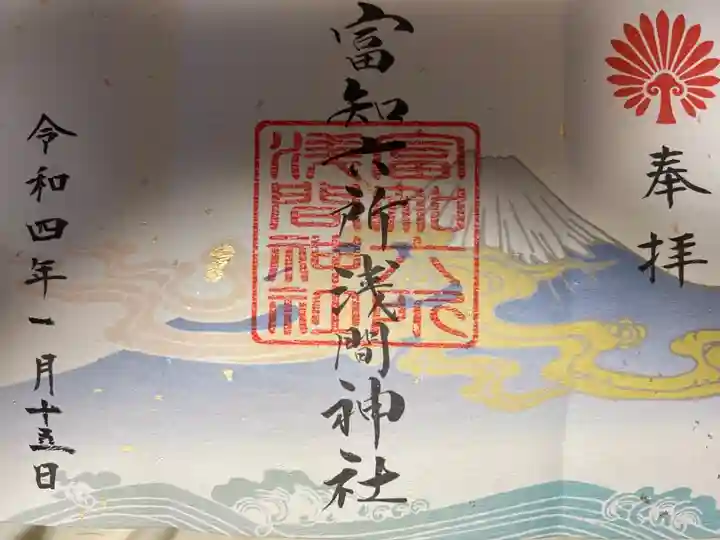 奉拝
富知六所浅間神社
富知六所
浅間神社
令和四年一月十五日